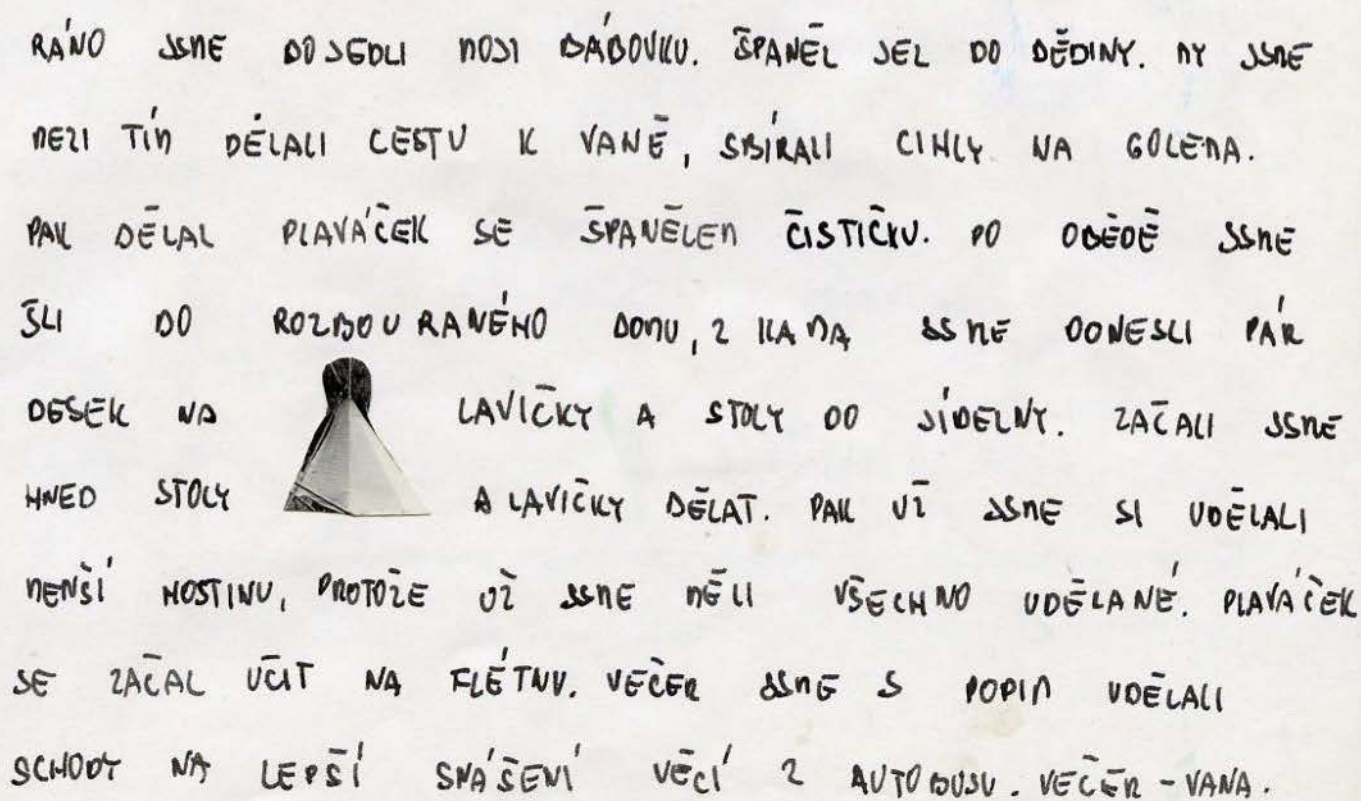 RÁNO JSME DOJEDLI MOJI BÁBOVKU. ŠPANĚL JEL DO DĚDINY. MY JSME
MEZI TÍM DĚLALI CESTU K VANĚ, SBÍRALI CIHLY NA GOLEMA.
PAK DĚLAL PLAVÁČEK SE ŠPANĚLEM ČISTIČKU. PO OBĚDĚ JSME
ŠLI DO ROZBOURANÉHO DOMU, Z KAMA JSME DONESLI PÁR
DESEK NA LAVIČKY A STOLY DO JÍDELNY. ZAČALI JSME
HNED STOLY A LAVIČKY DĚLAT. PAK UŽ JSME SI UDĚLALI
MENŠÍ HOSTINU, PROTOŽE UŽ JSME MĚLI VŠECHNO UDĚLANÉ. PLAVÁČEK
SE ZAČAL UČIT NA FLÉTNU. VEČER JSME S POPIM UDĚLALI
SCHODY NA LEPŠÍ SNÁŠENÍ VĚCÍ Z AUTOBUSU. VEČER - VANA.